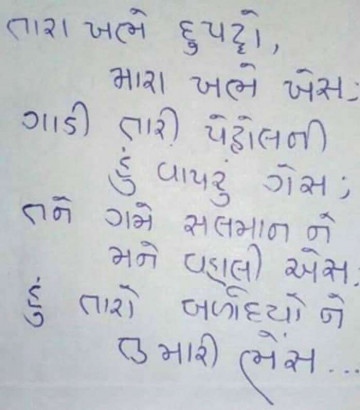 તારા ખભે દુપટ્ટો,
મારા ખભે ખેસ;
ગાડી તારી પેટ્રોલની
હું વાપરું ગેસ;
તને ગમે સલમાન ને
મને વ્હાલી એસ;
હું તારો બળદિયો ને
તુ મારી ભેંસ...